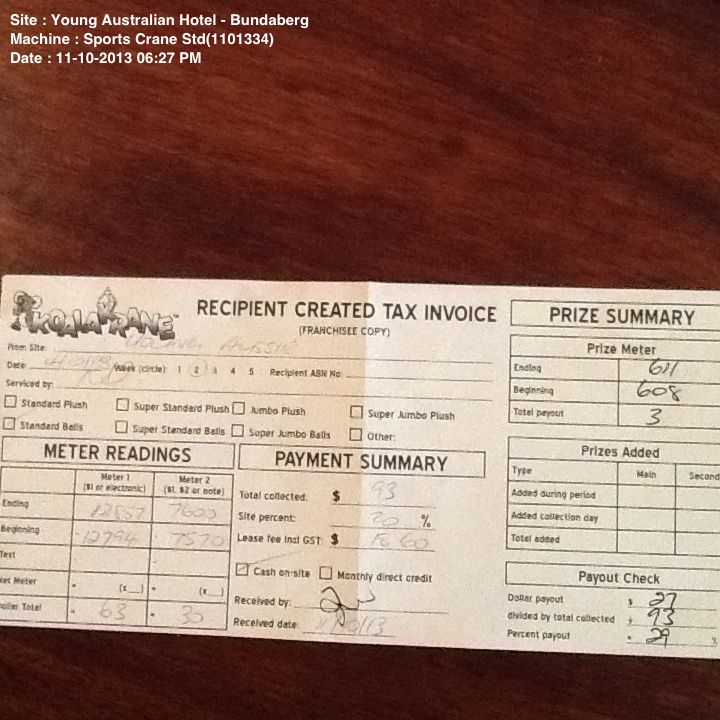 Site : Young Australian Hotel - Bundaberg
Machine : Sports Crane Std(1101334)
Date : 11-10-2013 06:27 PM
KOALA KRANE™
RECIPIENT CREATED TAX INVOICE
(FRANCHISEE COPY)
From Site: YOUNG AUSSIE
Date: Week (circle): 1 2 3 4 5 Recipient ABN No:
Serviced by:
Standard Plush Super Standard Plush Jumbo Plush Super Jumbo Plush
Standard Balls Super Standard Balls Super Jumbo Balls Other:
METER READINGS
Meter 1 Meter 2
($1 or electronic) ($1, $2 or note)
Ending 12857 7600
Beginning - 12794 - 7570
Test - -
Net Meter = (x__) = (x__)
Total = 63 = 30
PAYMENT SUMMARY
Total collected: $ 93
Site percent: 20 %
Lease fee incl GST: $ 60
Cash on-site Monthly direct credit
Received by:
Received date: 11/10/13
PRIZE SUMMARY
Prize Meter
Ending 611
Beginning 608
Total payout 3
Prizes Added
Type Main Second
Added during period
Added collection day
Total added
Payout Check
Dollar payout $ 27
divided by total collected ÷ 93
Percent payout = 29 %